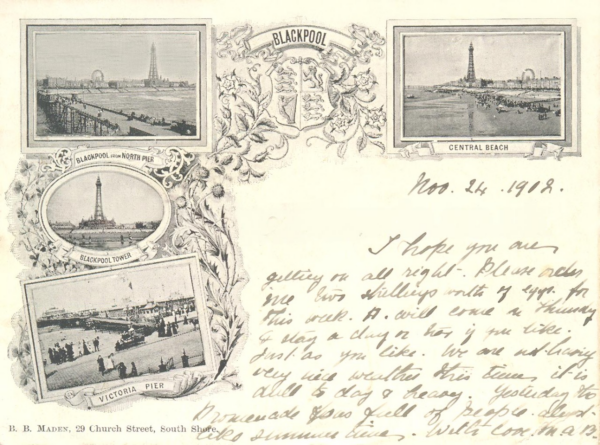 BLACKPOOL
BLACKPOOL from NORTH PIER
CENTRAL BEACH
BLACKPOOL TOWER
VICTORIA PIER
B. B. MADEN, 29 Church Street, South Shore.
Nov. 24. 1902.
I hope you are
getting on all right. Please order
me two shillings worth of eggs for
this week. A. will come on Thursday
& stay a day or two if you like.
Just as you like. We are not having
very nice weather this time, it is
dull to day & heavy. Yesterday the
Promenade was full of people almost
like summer time. With love, M. A. B.